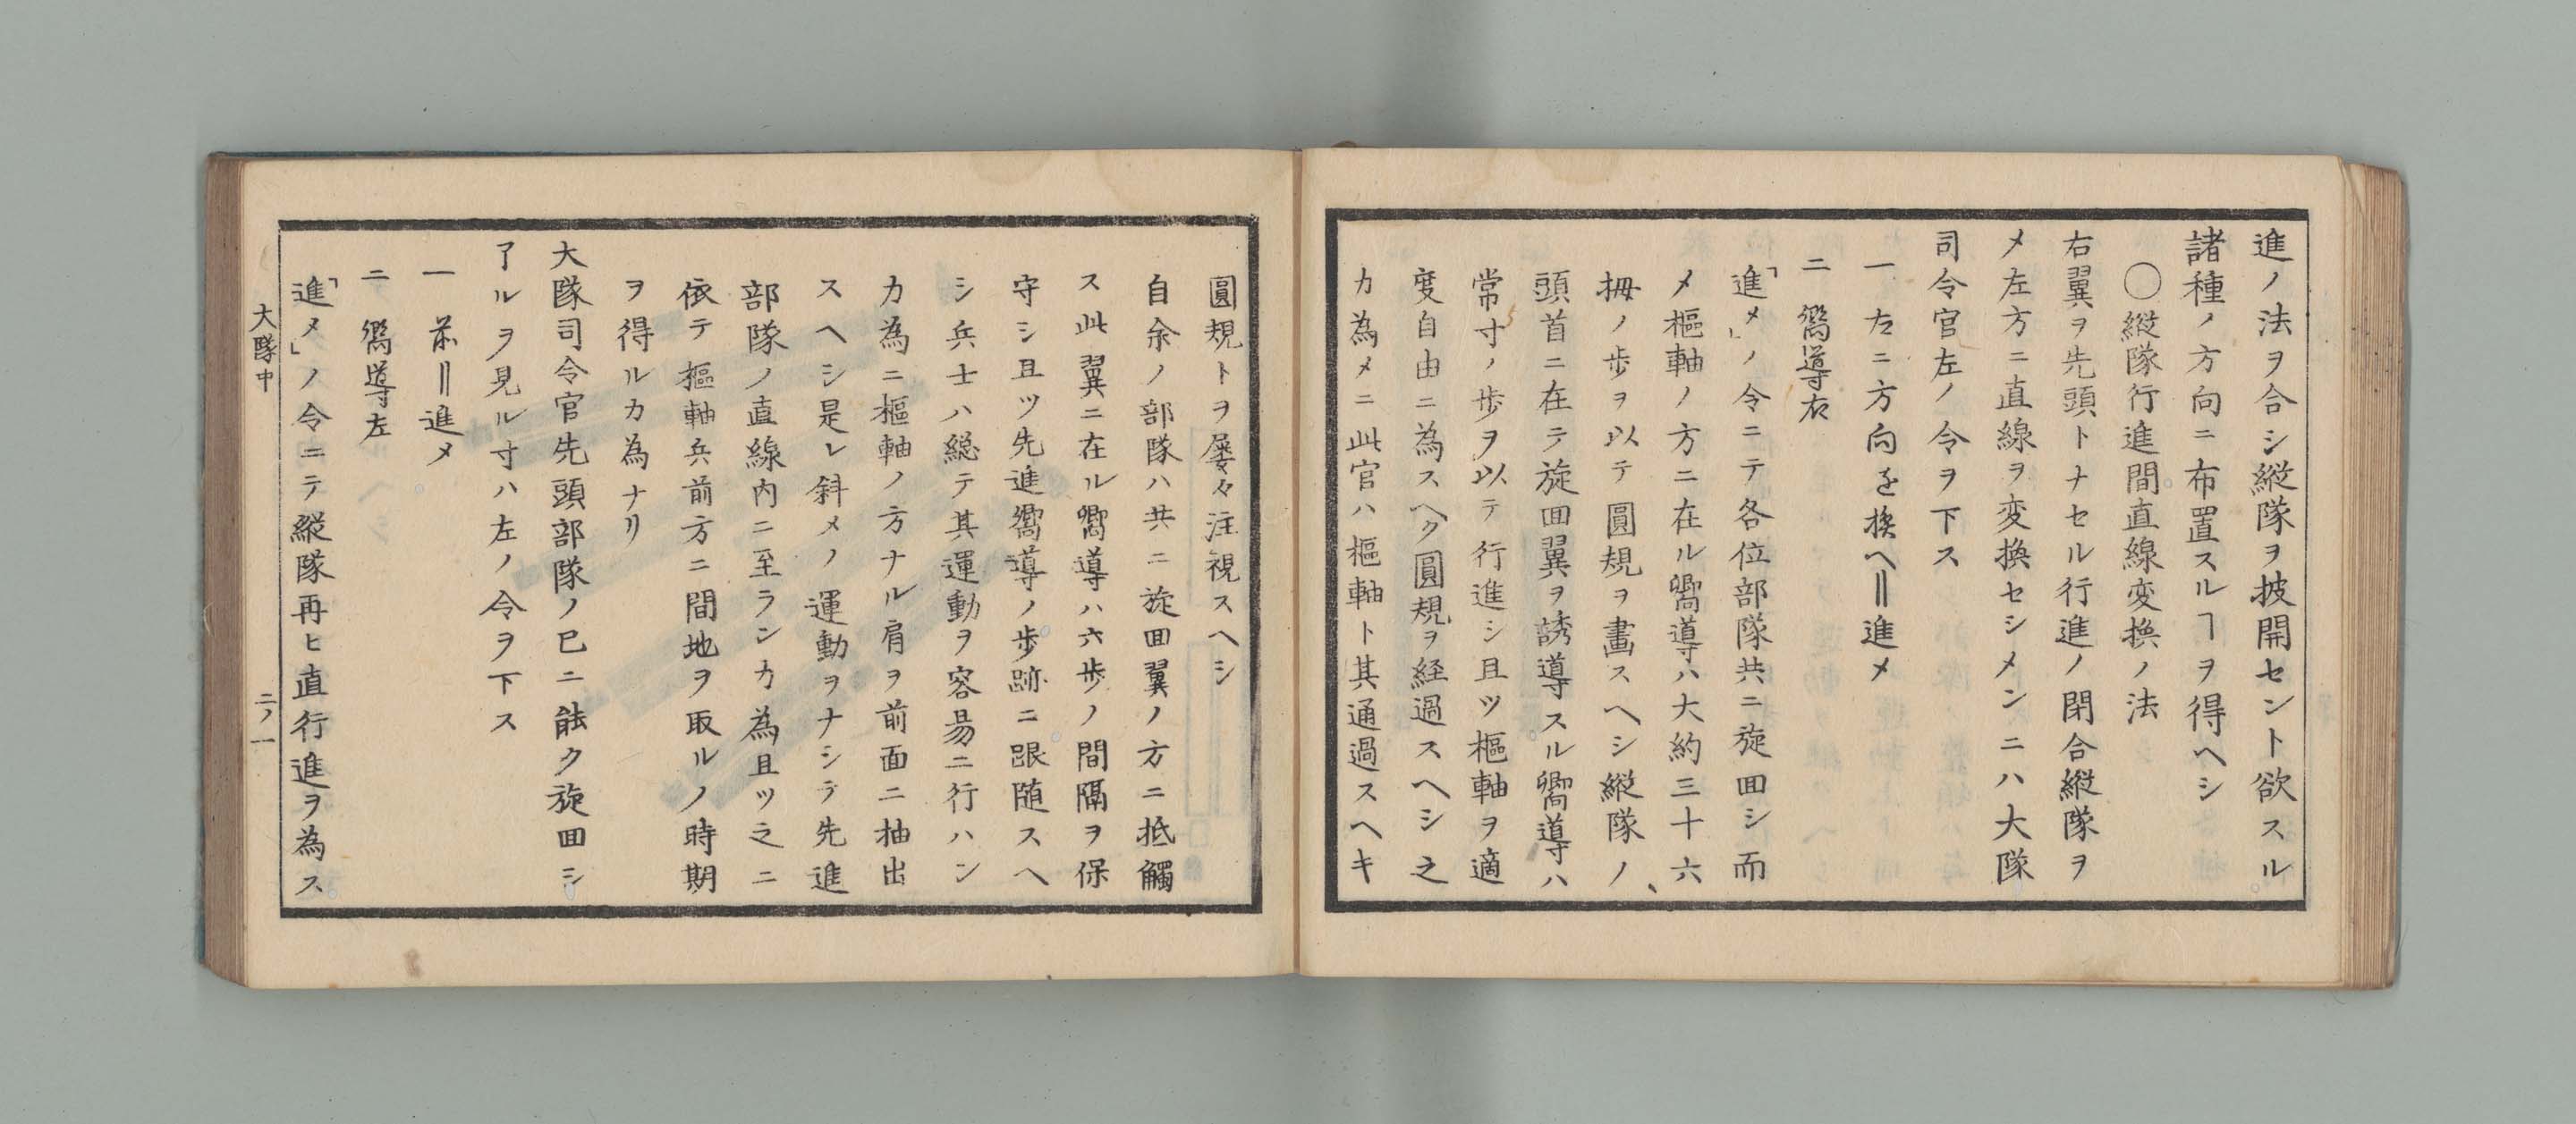 進ノ法ヲ合シ縦隊ヲ披開セント欲スル
諸種ノ方向ニ布置スルヿヲ得ヘシ
〇縦隊行進間直線変換ノ法
右翼ヲ先頭トナセル行進ノ閉合縦隊ヲ
メ左方ニ直線ヲ変換セシメンニハ大隊
司令官左ノ令ヲ下ス
一 左ニ方向を換へ‖進メ
二 嚮導右
「進メ」ノ令ニテ各位部隊共ニ旋回シ而
メ樞軸ノ方ニ在ル嚮導ハ大約三十六
拇ノ歩ヲ以テ圓規ヲ畵スヘシ縦隊ノ、
頭首ニ在テ旋回翼ヲ誘導スル嚮導ハ
常寸ノ歩ヲ以テ行進シ且ツ樞軸ヲ適
度自由ニ為スヘク圓規ヲ経過スヘシ之
カ為メニ此官ハ樞軸ト其通過スヘキ
圓規トヲ屡々注視スヘシ
自余ノ部隊ハ共ニ旋回翼ノ方ニ抵觸
ス此翼ニ在ル嚮導ハ六歩ノ間隔ヲ保
守シ且ツ先進嚮導ノ歩跡ニ跟随スヘ
シ兵士ハ総テ其運動ヲ容昜ニ行ハン
カ為ニ樞軸ノ方ナル肩ヲ前面ニ抽出
スヘシ是レ斜メノ運動ヲナシテ先進
部隊ノ直線内ニ至ランカ為且ツ之ニ
依テ樞軸兵前方ニ間地ヲ取ルノ時期
ヲ得ルカ為ナリ
大隊司令官先頭部隊ノ已ニ能ク旋回シ
了ルヲ見ル寸ハ左ノ令ヲ下ス
一 前‖進メ
二 嚮導左
「進メ」ノ令ニテ縦隊再ヒ直行進ヲ為ス
大隊中 二ノ一